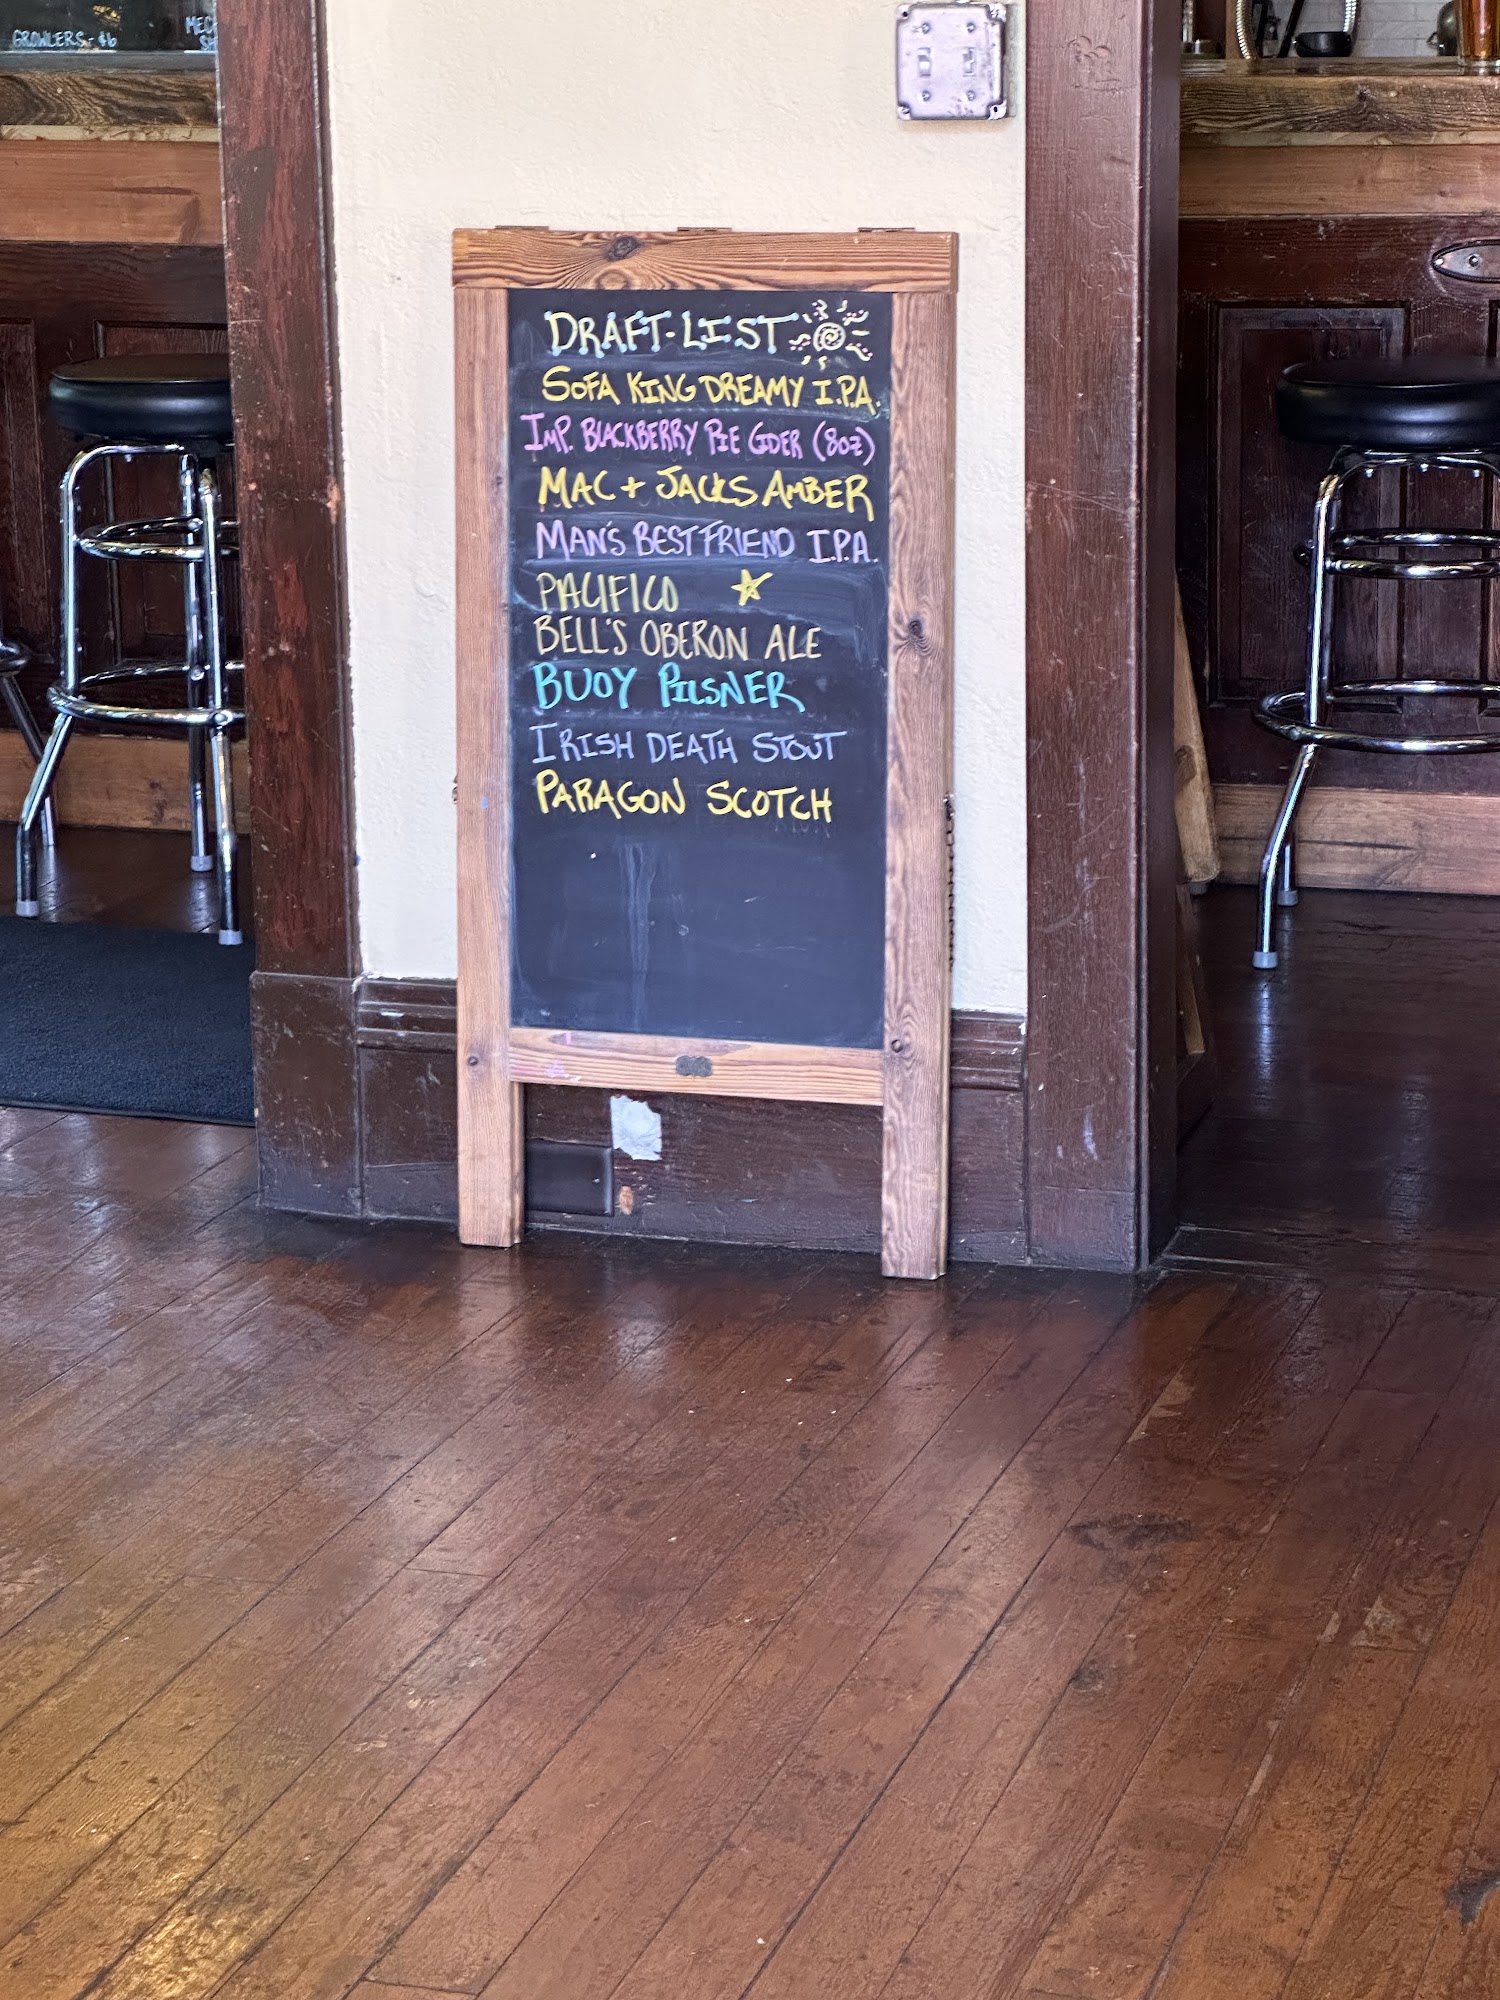 GROWLERS - $6
DRAFT-LIST
SOFA KING DREAMY I.P.A.
IMP. BLACKBERRY PIE CIDER (8oz)
MAC + JACKS AMBER
MAN'S BEST FRIEND I.P.A.
PACIFICO
BELL'S OBERON ALE
BUOY PILSNER
IRISH DEATH STOUT
PARAGON SCOTCH